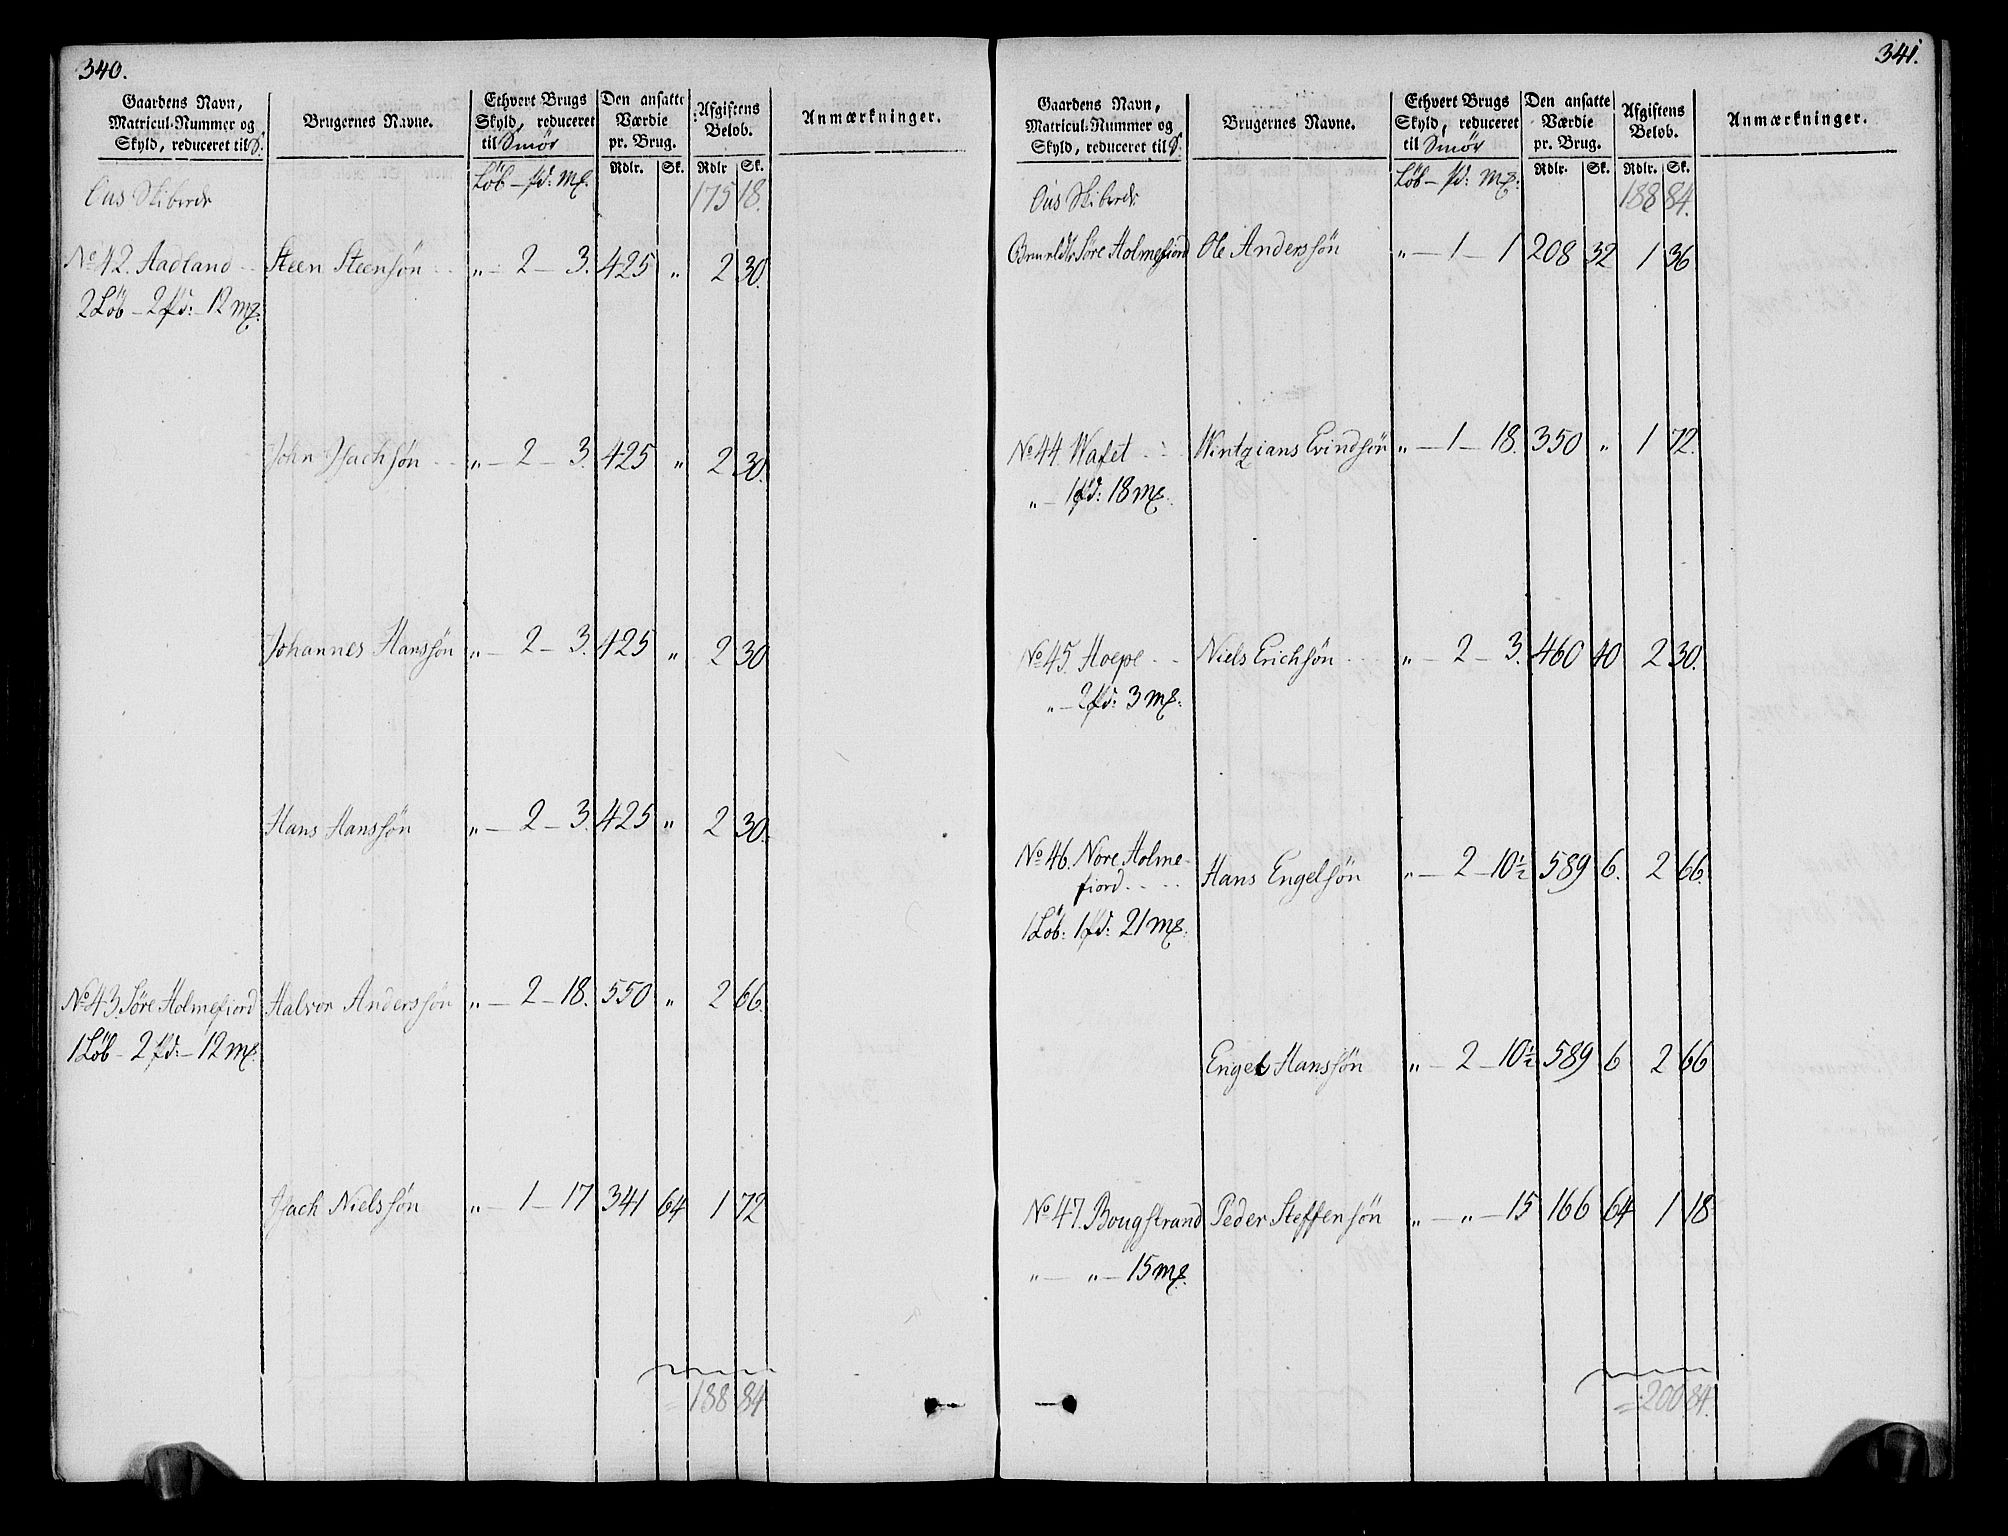 340.
Gaardens Navn, Matricul-Nummer og Skyld, reduceret til S. | Brugernes Navne. | Ethvert Brugs Skyld, reduceret til Smör | Den ansatte Værdie pr. Brug. | Afgiftens Beløb. | Anmærkninger.
Löb - pd: mk. | Rdlr. | Sk. | Rdlr | Sk.
Ous Skibrede 175 18.
No 42. Aadland Steen Steensøn „ - 2 - 3. 425 „ 2 30.
2 Löb - 2 pd: - 12 mk.
John Isachsøn „ - 2 - 3. 425 „ 2 30.
Johannes Hanssøn „ - 2 - 3. 425 „ 2 30
Hans Hanssøn „ - 2 - 3. 425 „ 2 30.
No 43. Søre Holmefiord Halvor Anderssøn „ - 2 - 18. 550 „ 2 66.
1 Löb - 2 pd: - 12 mk.
Isach Nielssøn „ - 1 - 17 341 64 1 72
= 188 84
341.
Gaardens Navn, Matricul-Nummer og Skyld, reduceret til S. | Brugernes Navne. | Ethvert Brugs Skyld, reduceret til Smör | Den ansatte Værdie pr. Brug. | Afgiftens Beløb. | Anmærkninger.
Löb - pd: mk: | Rdlr. | Sk. | Rdlr. | Sk.
Ous Skibrede 188 84.
Søre Holmefiord Ole Anderssøn „ - 1 - 1 208 32 1 36
No 44. Wafet Evindsøn „ - 1 - 18. 350 „ 1 72.
„ - 1 pd: 18 mk.
No 45. Hoepe Niels Erichsøn „ - 2 - 3. 460 40 2 30.
„ - 2 pd: 3 mk:
No 46. Nore Holme-
fiord Hans Engelsøn „ - 2 - 10½ 589 6. 2 66.
1 Löb: 1 pd: 21 mk:
Engel Hanssøn „ - 2 - 10½ 589 6 2 66
No 47. Bougstrand Peder Steffensøn „ - „ - 15 166 64 1 18
„ - „ - 15 mk.
= 200 84.